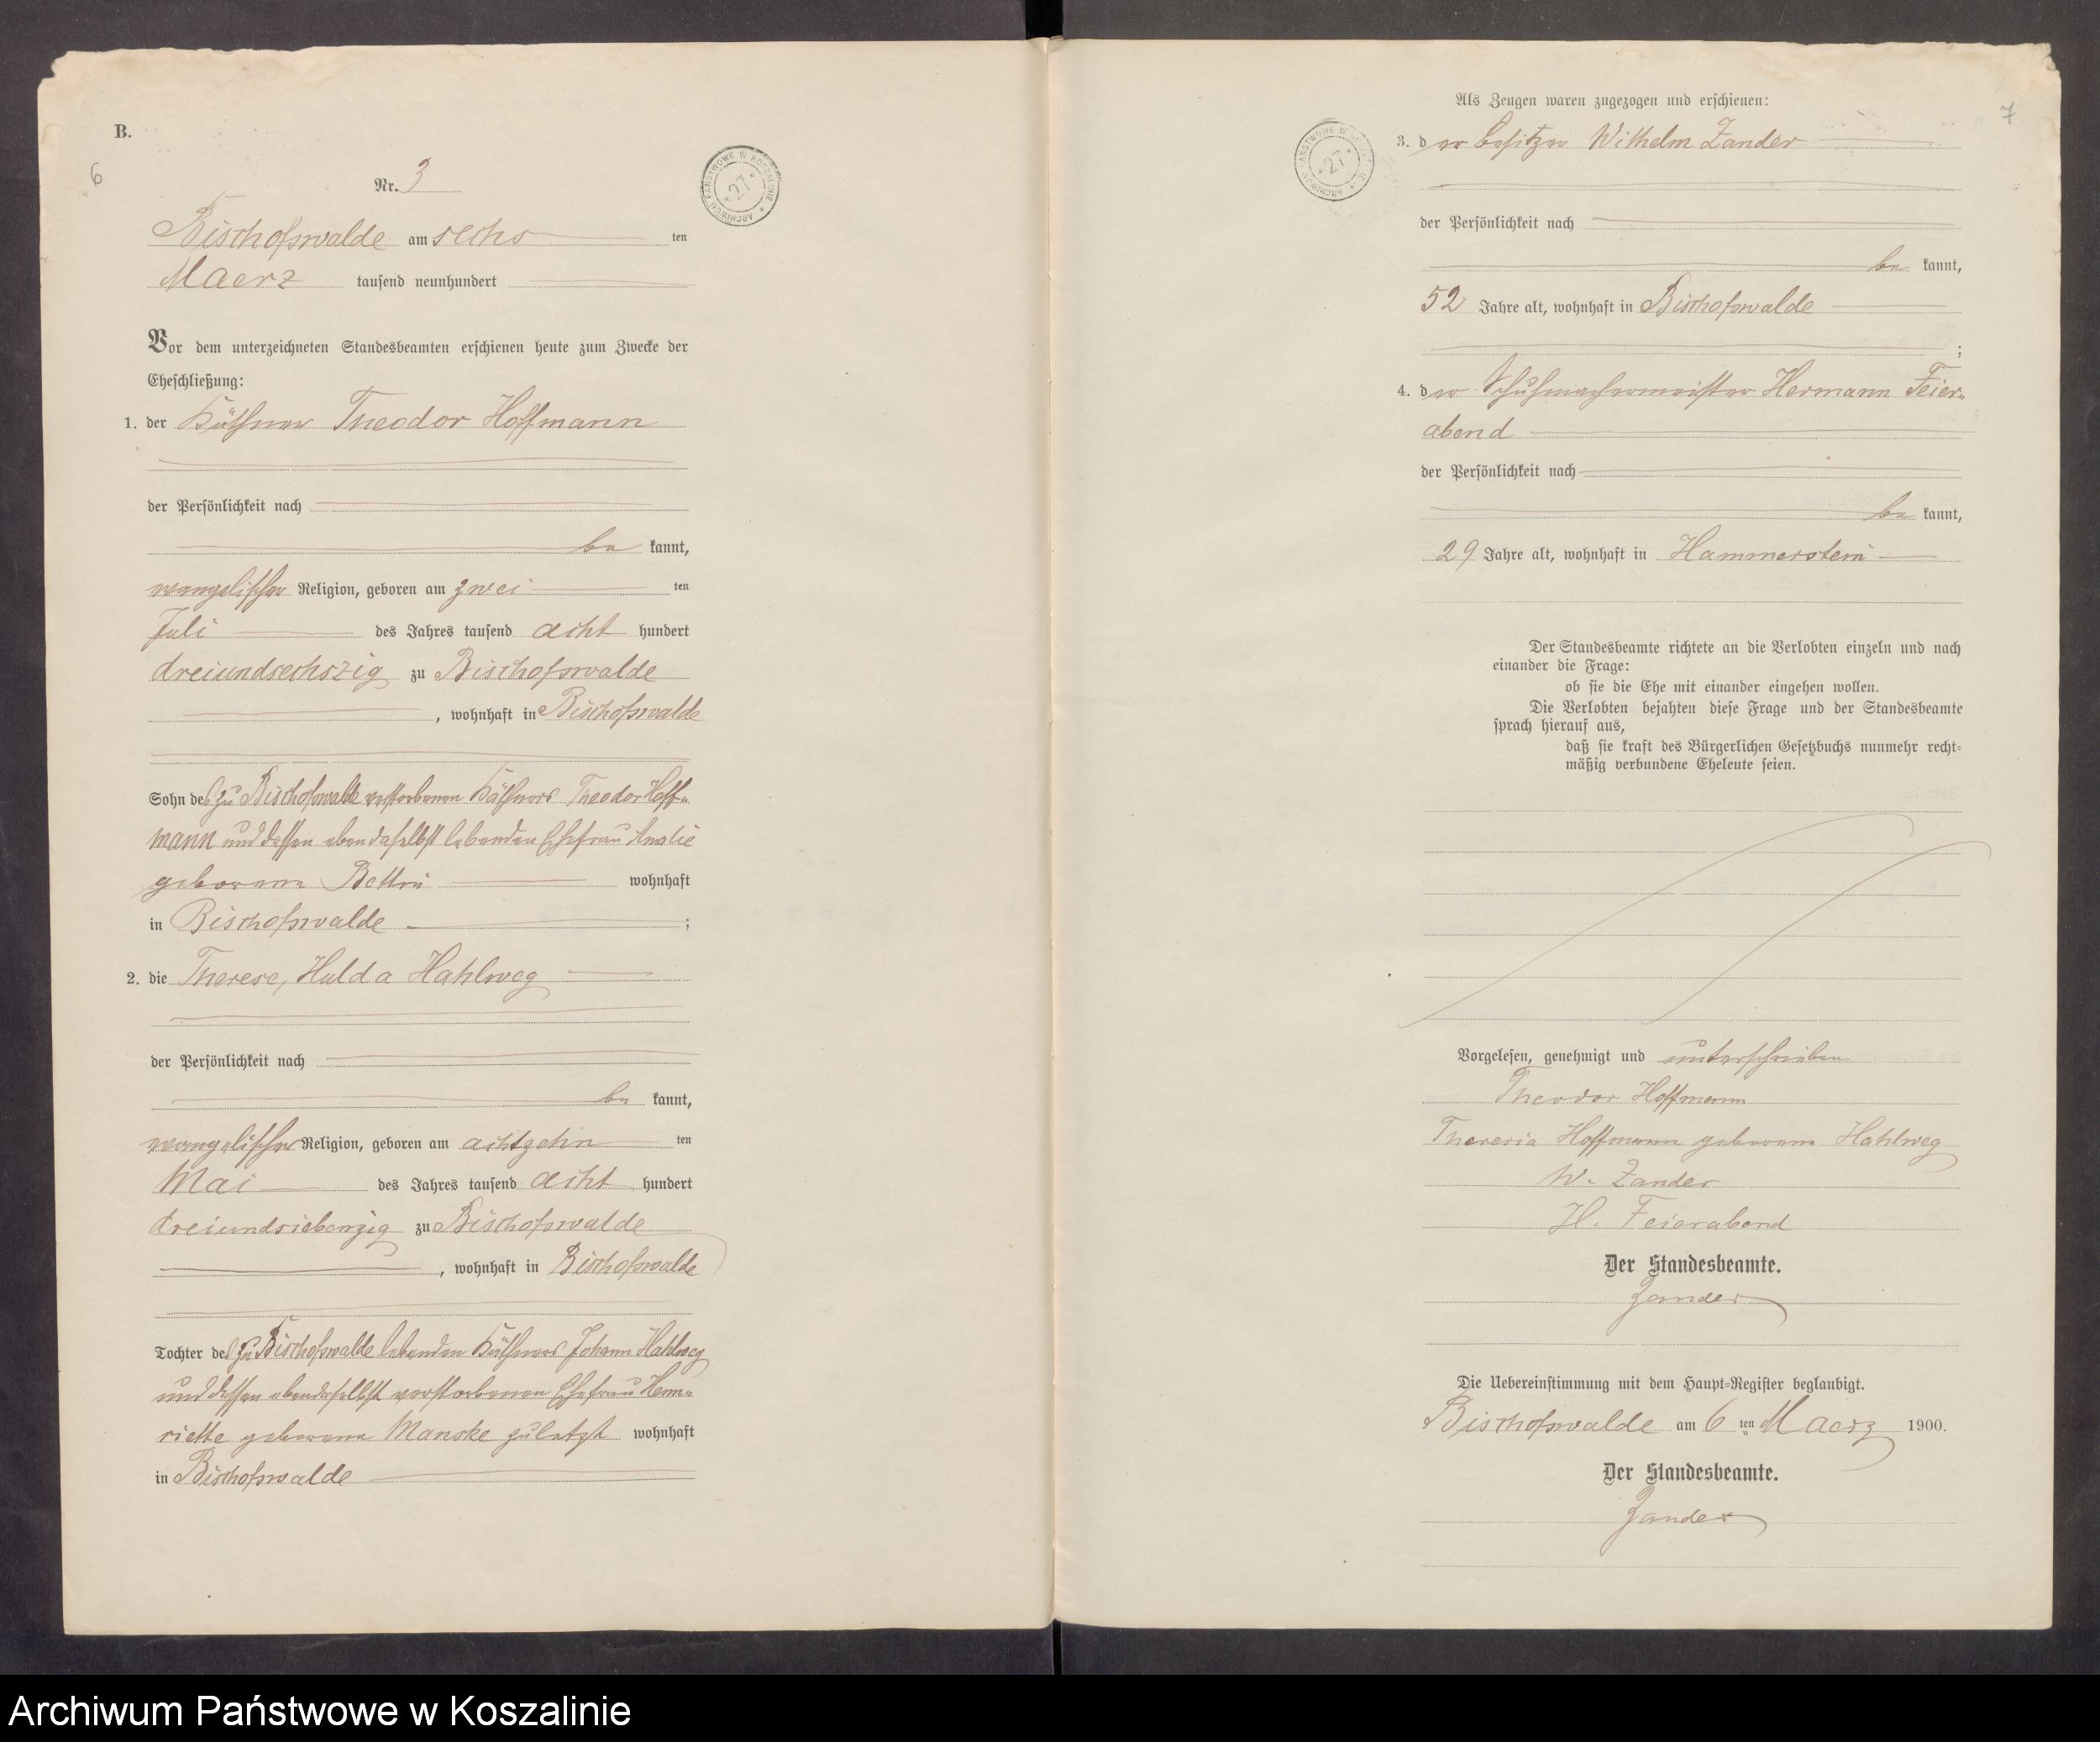 B.
6
Nr. 3
Bischofswalde am sechs ten
Maerz tausend neunhundert
Vor dem unterzeichneten Standesbeamten erschienen heute zum Zwecke der
Eheschließung:
1. der Käthner Theodor Hoffmann
der Persönlichkeit nach
be kannt,
evangelischer Religion, geboren am zwei ten
Juli des Jahres tausend acht hundert
dreiundsechszig zu Bischofswalde
, wohnhaft in Bischofswalde
Sohn des zu Bischofswalde verstorbenen Käthners Theodor Hoff-
mann und dessen ebendaselbst lebenden Ehefrau Amalie
geborene Bettin wohnhaft
in Bischofswalde ;
2. die Therese, Hulda Hahlweg
der Persönlichkeit nach
be kannt,
evangelischer Religion, geboren am achtzehn ten
Mai des Jahres tausend acht hundert
dreiundsiebenzig zu Bischofswalde
, wohnhaft in Bischofswalde
Tochter des zu Bischofswalde lebenden Käthners Johann Hahlweg
und dessen ebendaselbst verstorbenen Ehefrau Hen-
riette geborene Manske zuletzt wohnhaft
in Bischofswalde
ARCHIWUM PAŃSTWOWE W KOSZALINIE * 27 *
7
Als Zeugen waren zugezogen und erschienen:
ARCHIWUM PAŃSTWOWE W KOSZALINIE * 27 *
3. der Besitzer Wilhelm Zander
der Persönlichkeit nach
be kannt,
52 Jahre alt, wohnhaft in Bischofswalde
;
4. der Schuhmachermeister Hermann Feier-
abend
der Persönlichkeit nach
be kannt,
29 Jahre alt, wohnhaft in Hammerstein
Der Standesbeamte richtete an die Verlobten einzeln und nach
einander die Frage:
ob sie die Ehe mit einander eingehen wollen.
Die Verlobten bejahten diese Frage und der Standesbeamte
sprach hierauf aus,
daß sie kraft des Bürgerlichen Gesetzbuchs nunmehr recht-
mäßig verbundene Eheleute seien.
Vorgelesen, genehmigt und unterschrieben
Theodor Hoffmann
Theresia Hoffmann geborene Hahlweg
W. Zander
H. Feierabend
Der Standesbeamte.
Zander
Die Uebereinstimmung mit dem Haupt-Register beglaubigt.
Bischofswalde am 6 ten Maerz 1900.
Der Standesbeamte.
Zander
Archiwum Państwowe w Koszalinie